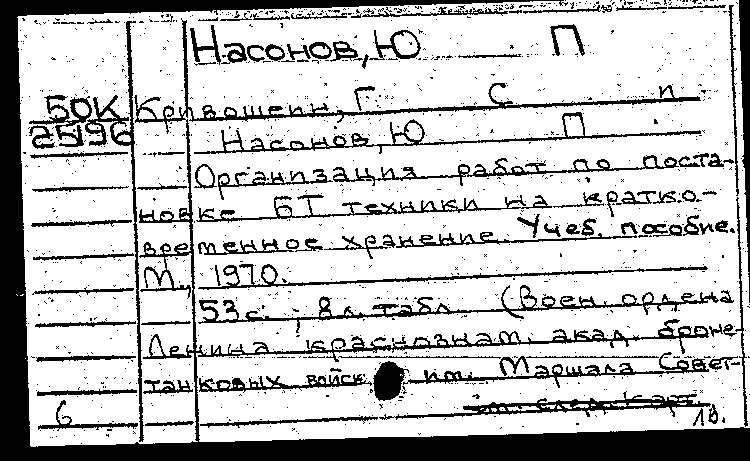 Насонов, Ю П
50К Кривошеин, Г С п
25196 Насонов, Ю П.
Организация работ по поста-
новке БТ техники на кратко-
временное хранение. Учеб. пособие.
М., 1970.
53 с. ; 8 л. табл. (Воен. ордена
Ленина краснознам. акад. броне-
танковых войск им. Маршала Совет-
см. след. карт.
6 1В.